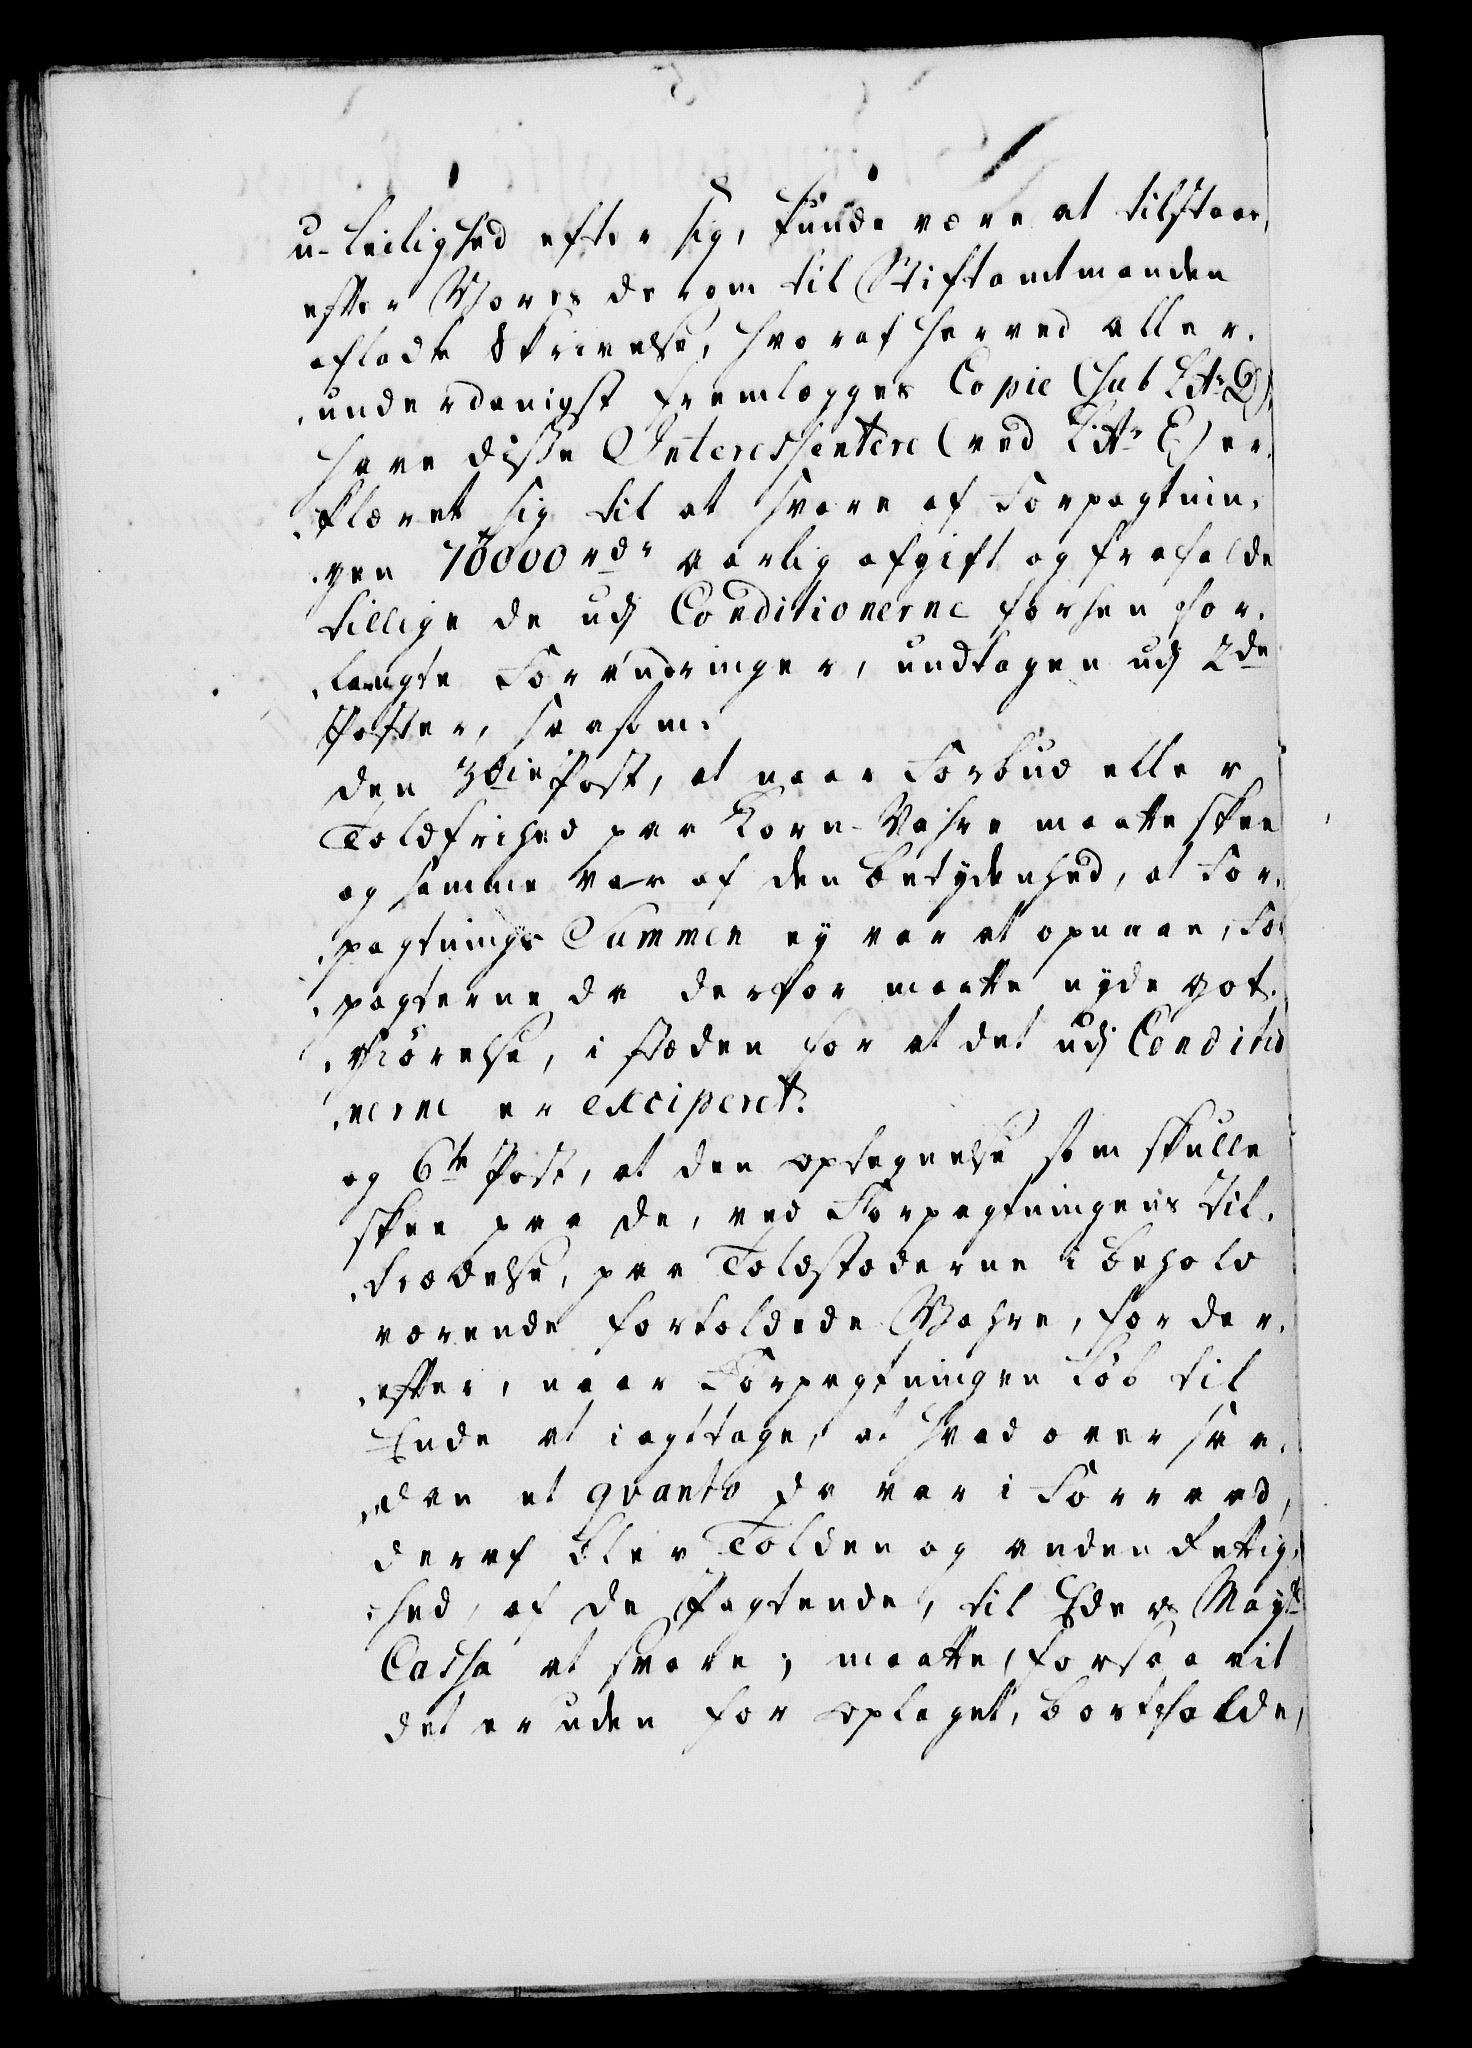 u-leilighed efter sig, kunde være at tilstaae,
efter Vores derom til Stiftamtmanden
afladte Skrivelse, hvoraf herved aller-
underdanigst fremlægges Copie (sub Litr. D),
have disse Interessentere (ved Litr. E) er-
klæret sig til at svare af Forpagtnin-
gen 70000 rdr aarlig afgift og fraholde
tillige de udj Conditionerne forhen for-
langte Forandringer, undtagen udj 2de
Poster, saasom:
den 3die Post, at naar Forbud eller
Toldfrihed paa Korn-Vahre maatte skee
og samme var af den betydenhed, at For-
pagtnings Summen ey var at opnaae, For-
pagterne da derfor maatte nyde got-
giörelse, i stæden for at det udj Conditio
nerne er exciperet.
og 6te Post, at den optegnelse som skulle
skee paa de, ved Forpagtningens Til-
trædelse, paa Toldstæderne i behold
værende fortoldede Vahre, for der-
efter, naar Forpagtningen löb til
Ende at iagttage, at hvad over saa-
dan et qvanto da var i Forraad,
deraf blev Tolden og anden Rettig-
hed, af de Pagtende, til Eders Mayts
Cassa at svare; maatte, forsaavit
det er uden for oplaget, bortfalde,